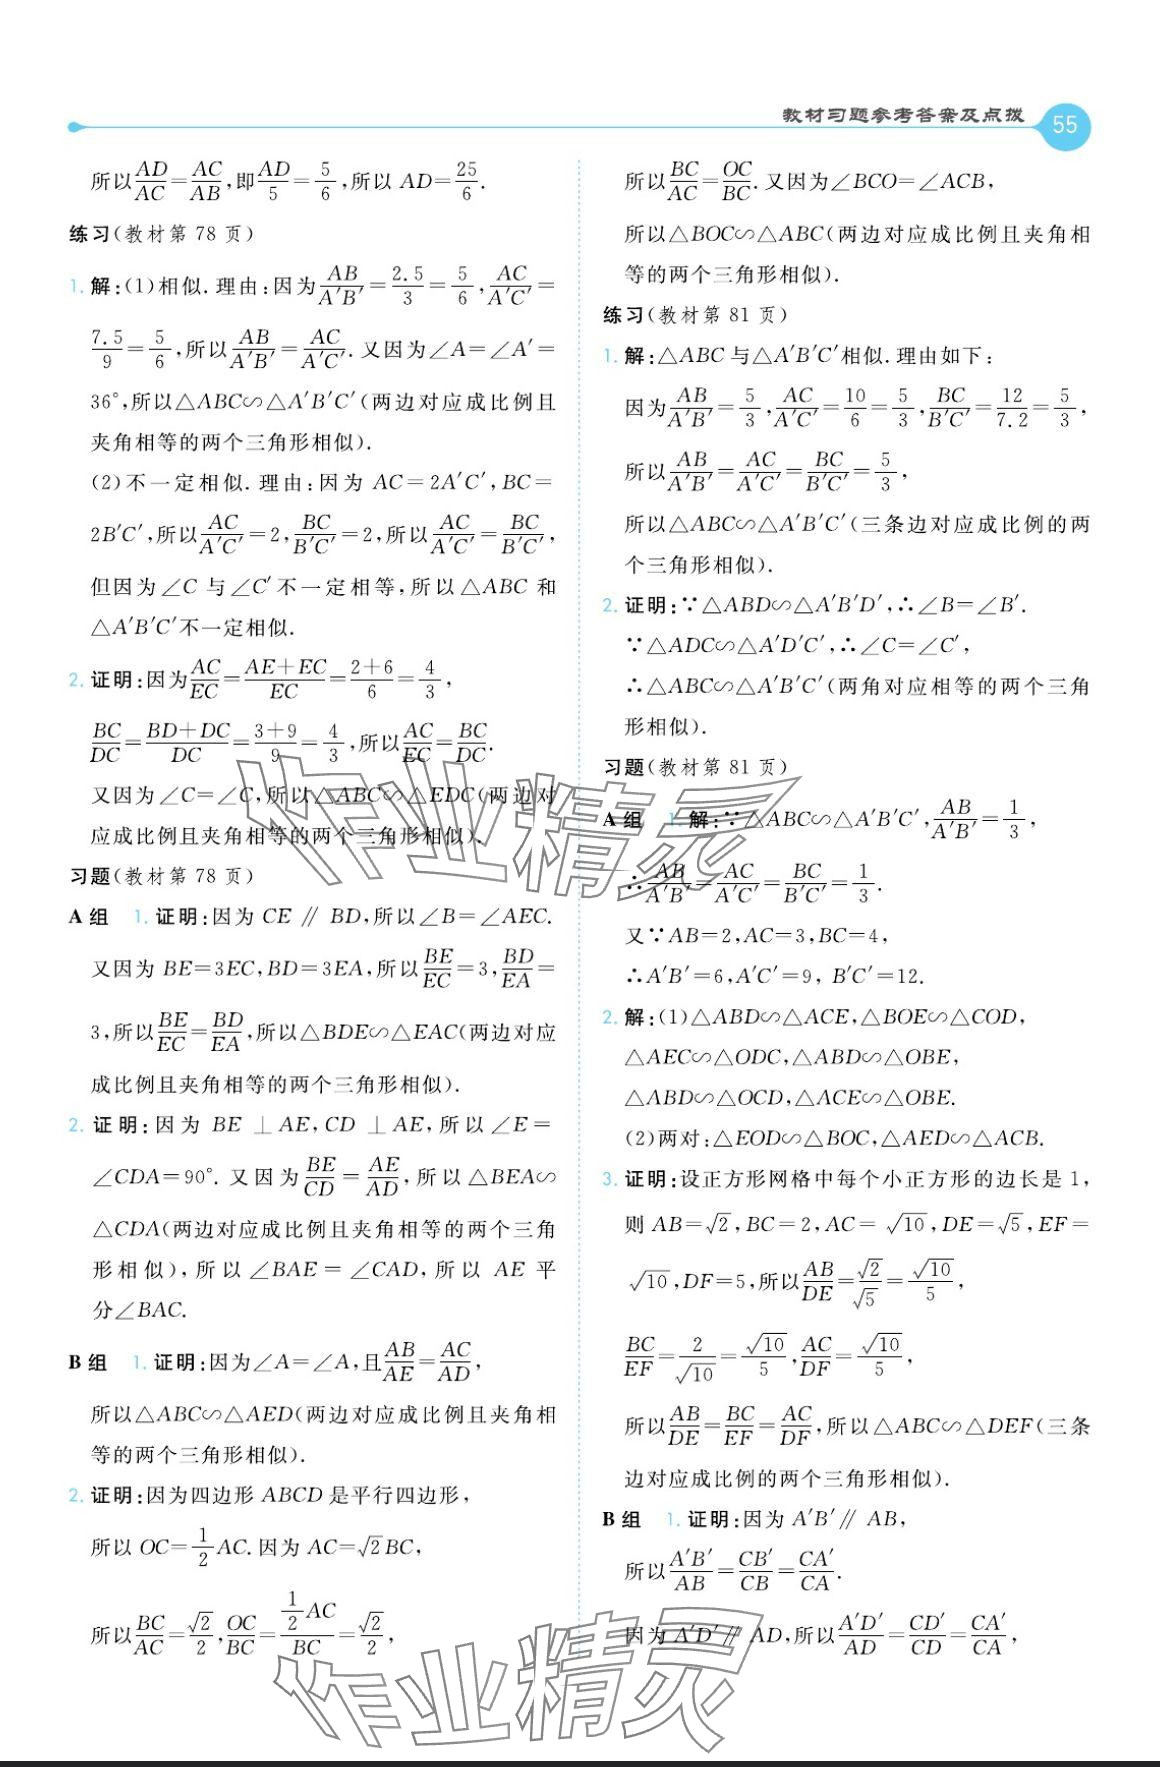 教材习题参考答案及点拨 55
所以AD/AC=AC/AB,即AD/5=5/6,所以 AD=25/6.
练习(教材第 78 页)
1. 解:(1)相似.理由:因为AB/A′B′=2.5/3=5/6,AC/A′C′=
7.5/9=5/6,所以AB/A′B′=AC/A′C′.又因为∠A=∠A′=
36°,所以△ABC∽△A′B′C′(两边对应成比例且
夹角相等的两个三角形相似).
(2)不一定相似.理由:因为 AC=2A′C′,BC=
2B′C′,所以AC/A′C′=2,BC/B′C′=2,所以AC/A′C′=BC/B′C′,
但因为∠C 与∠C′不一定相等,所以△ABC 和
△A′B′C′不一定相似.
2. 证明:因为AC/EC=AE+EC/EC=2+6/6=4/3,
BC/DC=BD+DC/DC=3+9/9=4/3,所以AC/EC=BC/DC.
又因为∠C=∠C,所以△ABC∽△EDC(两边对
应成比例且夹角相等的两个三角形相似).
习题(教材第 78 页)
A 组 1. 证明:因为 CE∥BD,所以∠B=∠AEC.
又因为 BE=3EC,BD=3EA,所以BE/EC=3,BD/EA=
3,所以BE/EC=BD/EA,所以△BDE∽△EAC(两边对应
成比例且夹角相等的两个三角形相似).
2. 证明:因为 BE⊥AE,CD⊥AE,所以∠E=
∠CDA=90°.又因为BE/CD=AE/AD,所以△BEA∽
△CDA(两边对应成比例且夹角相等的两个三角
形相似),所以∠BAE=∠CAD,所以 AE 平
分∠BAC.
B 组 1. 证明:因为∠A=∠A,且AB/AE=AC/AD,
所以△ABC∽△AED(两边对应成比例且夹角相
等的两个三角形相似).
2. 证明:因为四边形 ABCD 是平行四边形,
所以 OC=1/2AC.因为 AC=√2BC,
所以BC/AC=√2/2,OC/BC=1/2AC/BC=√2/2,
所以BC/AC=OC/BC.又因为∠BCO=∠ACB,
所以△BOC∽△ABC(两边对应成比例且夹角相
等的两个三角形相似).
练习(教材第 81 页)
1. 解:△ABC 与△A′B′C′相似.理由如下:
因为AB/A′B′=5/3,AC/A′C′=10/6=5/3,BC/B′C′=12/7.2=5/3,
所以AB/A′B′=AC/A′C′=BC/B′C′=5/3,
所以△ABC∽△A′B′C′(三条边对应成比例的两
个三角形相似).
2. 证明:∵△ABD∽△A′B′D′,∴∠B=∠B′.
∵△ADC∽△A′D′C′,∴∠C=∠C′,
∴△ABC∽△A′B′C′(两角对应相等的两个三角
形相似).
习题(教材第 81 页)
A 组 1. 解:∵△ABC∽△A′B′C′,AB/A′B′=1/3,
∴AB/A′B′=AC/A′C′=BC/B′C′=1/3.
又∵AB=2,AC=3,BC=4,
∴A′B′=6,A′C′=9,B′C′=12.
2. 解:(1)△ABD∽△ACE,△BOE∽△COD,
△AEC∽△ODC,△ABD∽△OBE,
△ABD∽△OCD,△ACE∽△OBE.
(2)两对:△EOD∽△BOC,△AED∽△ACB.
3. 证明:设正方形网格中每个小正方形的边长是 1,
则 AB=√2,BC=2,AC=√10,DE=√5,EF=
√10,DF=5,所以AB/DE=√2/√5=√10/5,
BC/EF=2/√10=√10/5,AC/DF=√10/5,
所以AB/DE=BC/EF=AC/DF,所以△ABC∽△DEF(三条
边对应成比例的两个三角形相似).
B 组 1. 证明:因为 A′B′∥AB,
所以A′B′/AB=CB′/CB=CA′/CA.
因为 A′D′∥AD,所以A′D′/AD=CD′/CD=CA′/CA,
作业精灵
作业精灵